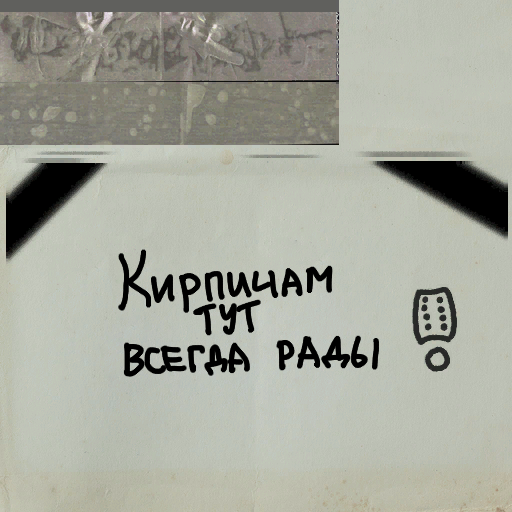 Кирпичам
тут
всегда рады!